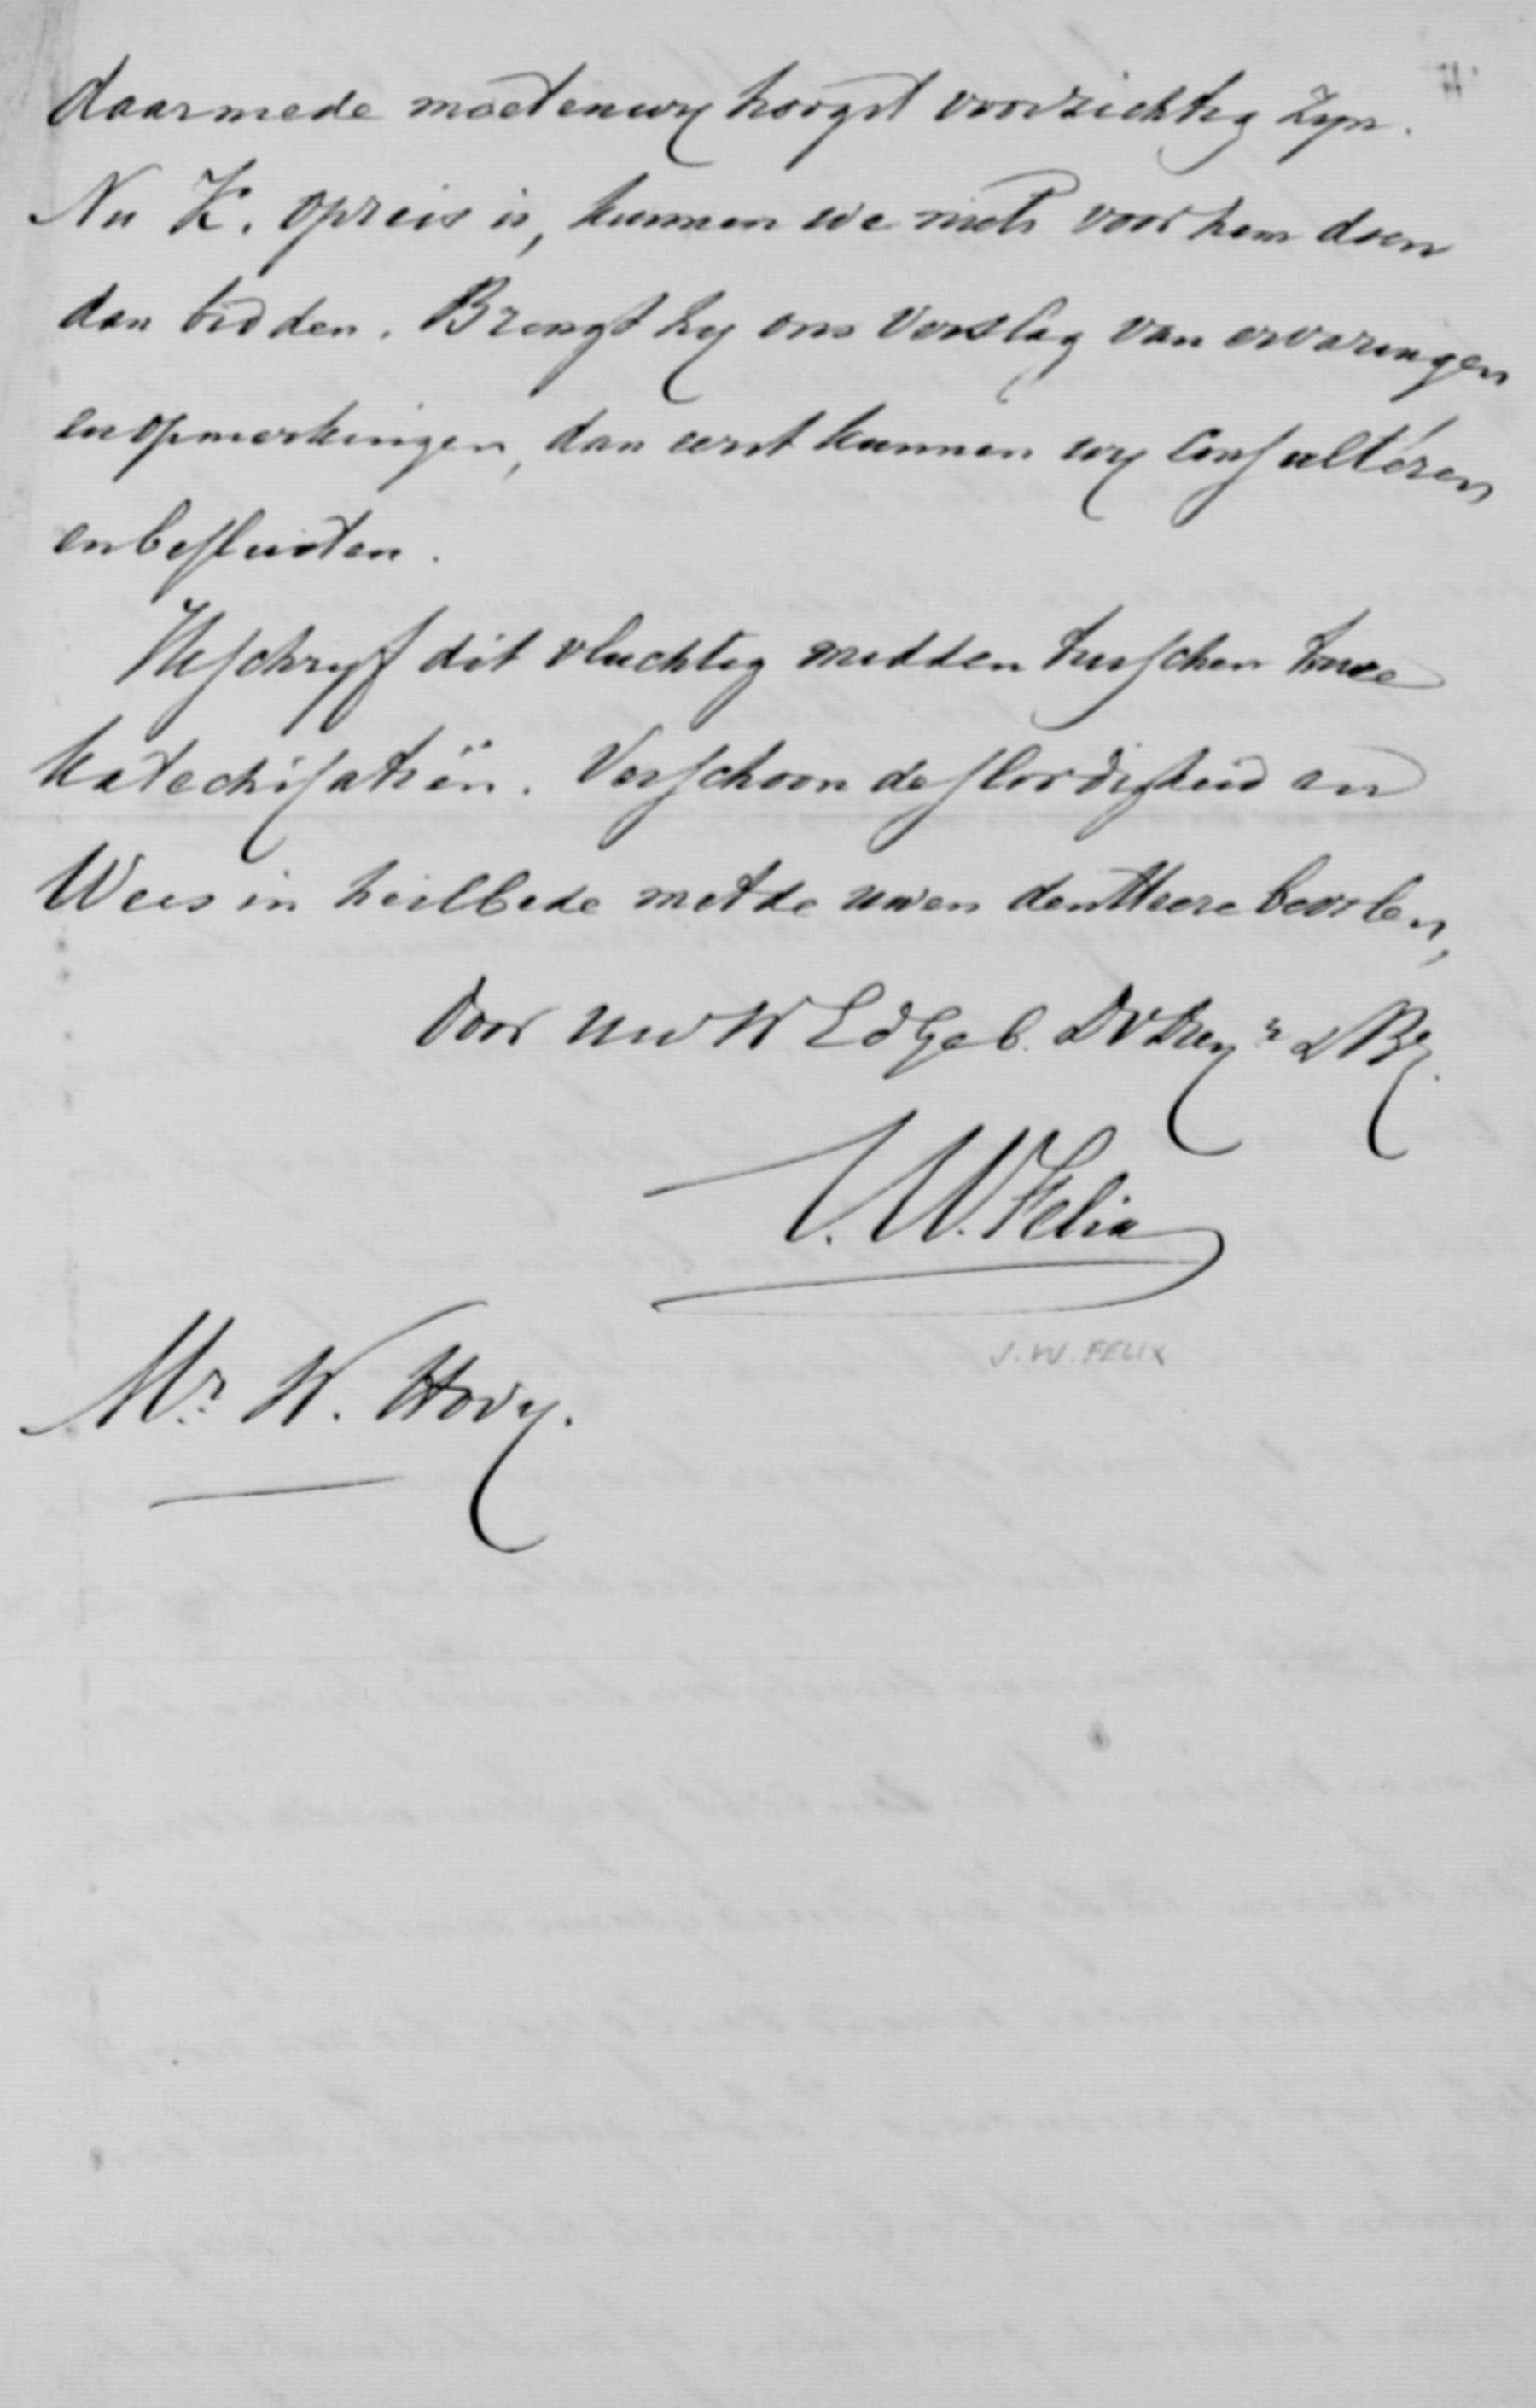 daarmede moeten wy hoogst voorzichtig zyn.
Nu K. op reis is, kunnen we niets voor hem doen
dan bidden. Brengt hy ons verslag van ervaringen
en opmerkingen, dan eerst kunnen wy consulteren
en besluiten.
Ik schryf dit vluchtig midden tusschen twee
Katechisatiën. Verschoon de slordigheid en
Wees in heilbede met de uwen den Heere bevolen,
door Uw W Ed Geb. Dv Dien.r & Br.
J. W. Felix
J. W. FELIX
Mr. W. Hovy.